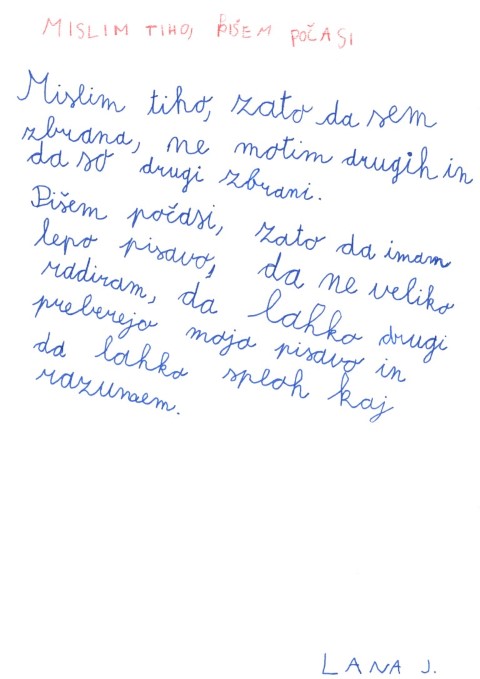 MISLIM TIHO, PIŠEM POČASI
Mislim tiho, zato da sem
zbrana, ne motim drugih in
da so drugi zbrani.
Pišem počasi, zato da imam
lepo pisavo, da ne veliko
radiram, da lahko drugi
preberejo mojo pisavo in
da lahko sploh kaj
razumem.
LANA J.